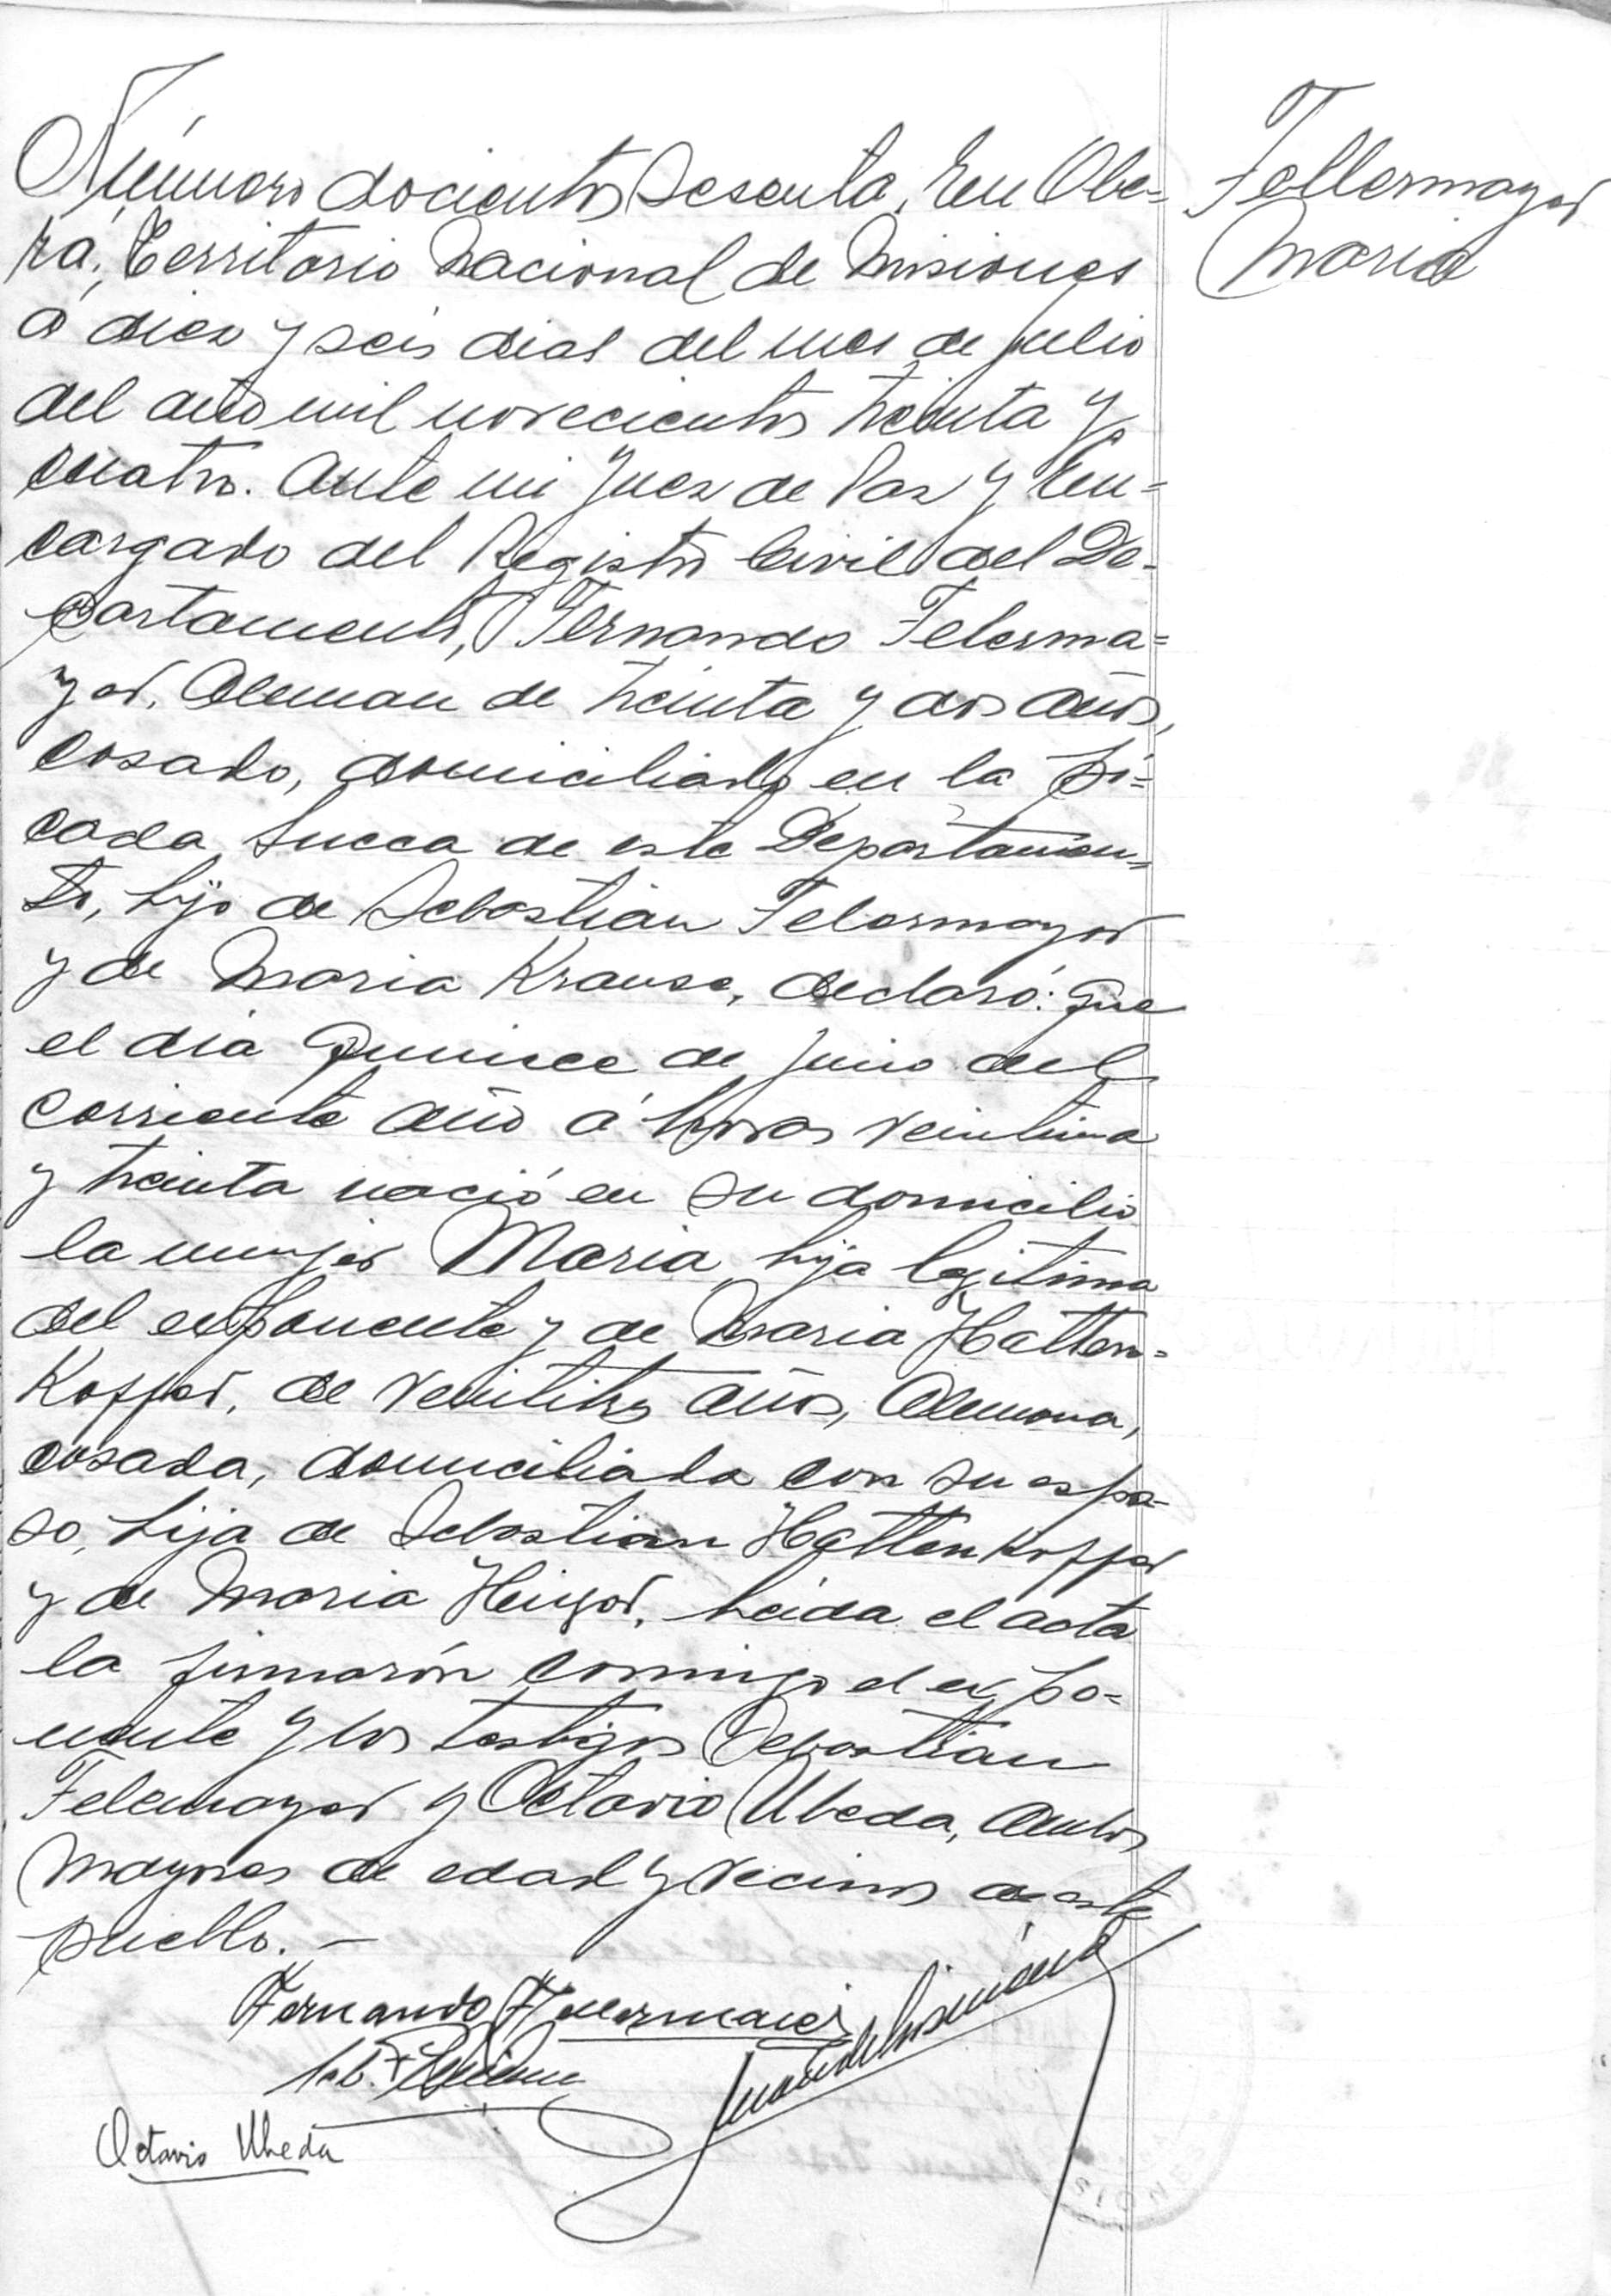 Número docientos sesenta. En Obe=
Fellermayer
rá, Territorio Nacional de Misiones
Maria
á diez y seis dias del mes de julio
del año mil novecientos treinta y
cuatro. Ante mi Juez de Paz y En=
cargado del Registro Civil del De=
partamento, Fernando Felerma=
yer, Aleman de treinta y dos años,
casado, domiciliado en la pi=
cada Sueca de este Departamen=
to, hijo de Sebastian Felermayer
y de Maria Krause, declaró: Que
el dia Quince de Junio del
corriente año á horas veintiuna
y treinta nació en su domicilio
la mujer Maria hija legitima
del exponente y de Maria Hatten=
Koffer, de veintitres años, Alemana,
casada, domiciliada con su espo=
so, hija de Sebastian Hatten Koffer
y de Maria, leida el acta
la firmarón conmigo el expo=
nente y los testigos Sebastian
Felemayer y Octavio Ubeda, ambos
mayores de edad y vecinos de este
pueblo. —
Fernando
Seb.
Octavio Ubeda